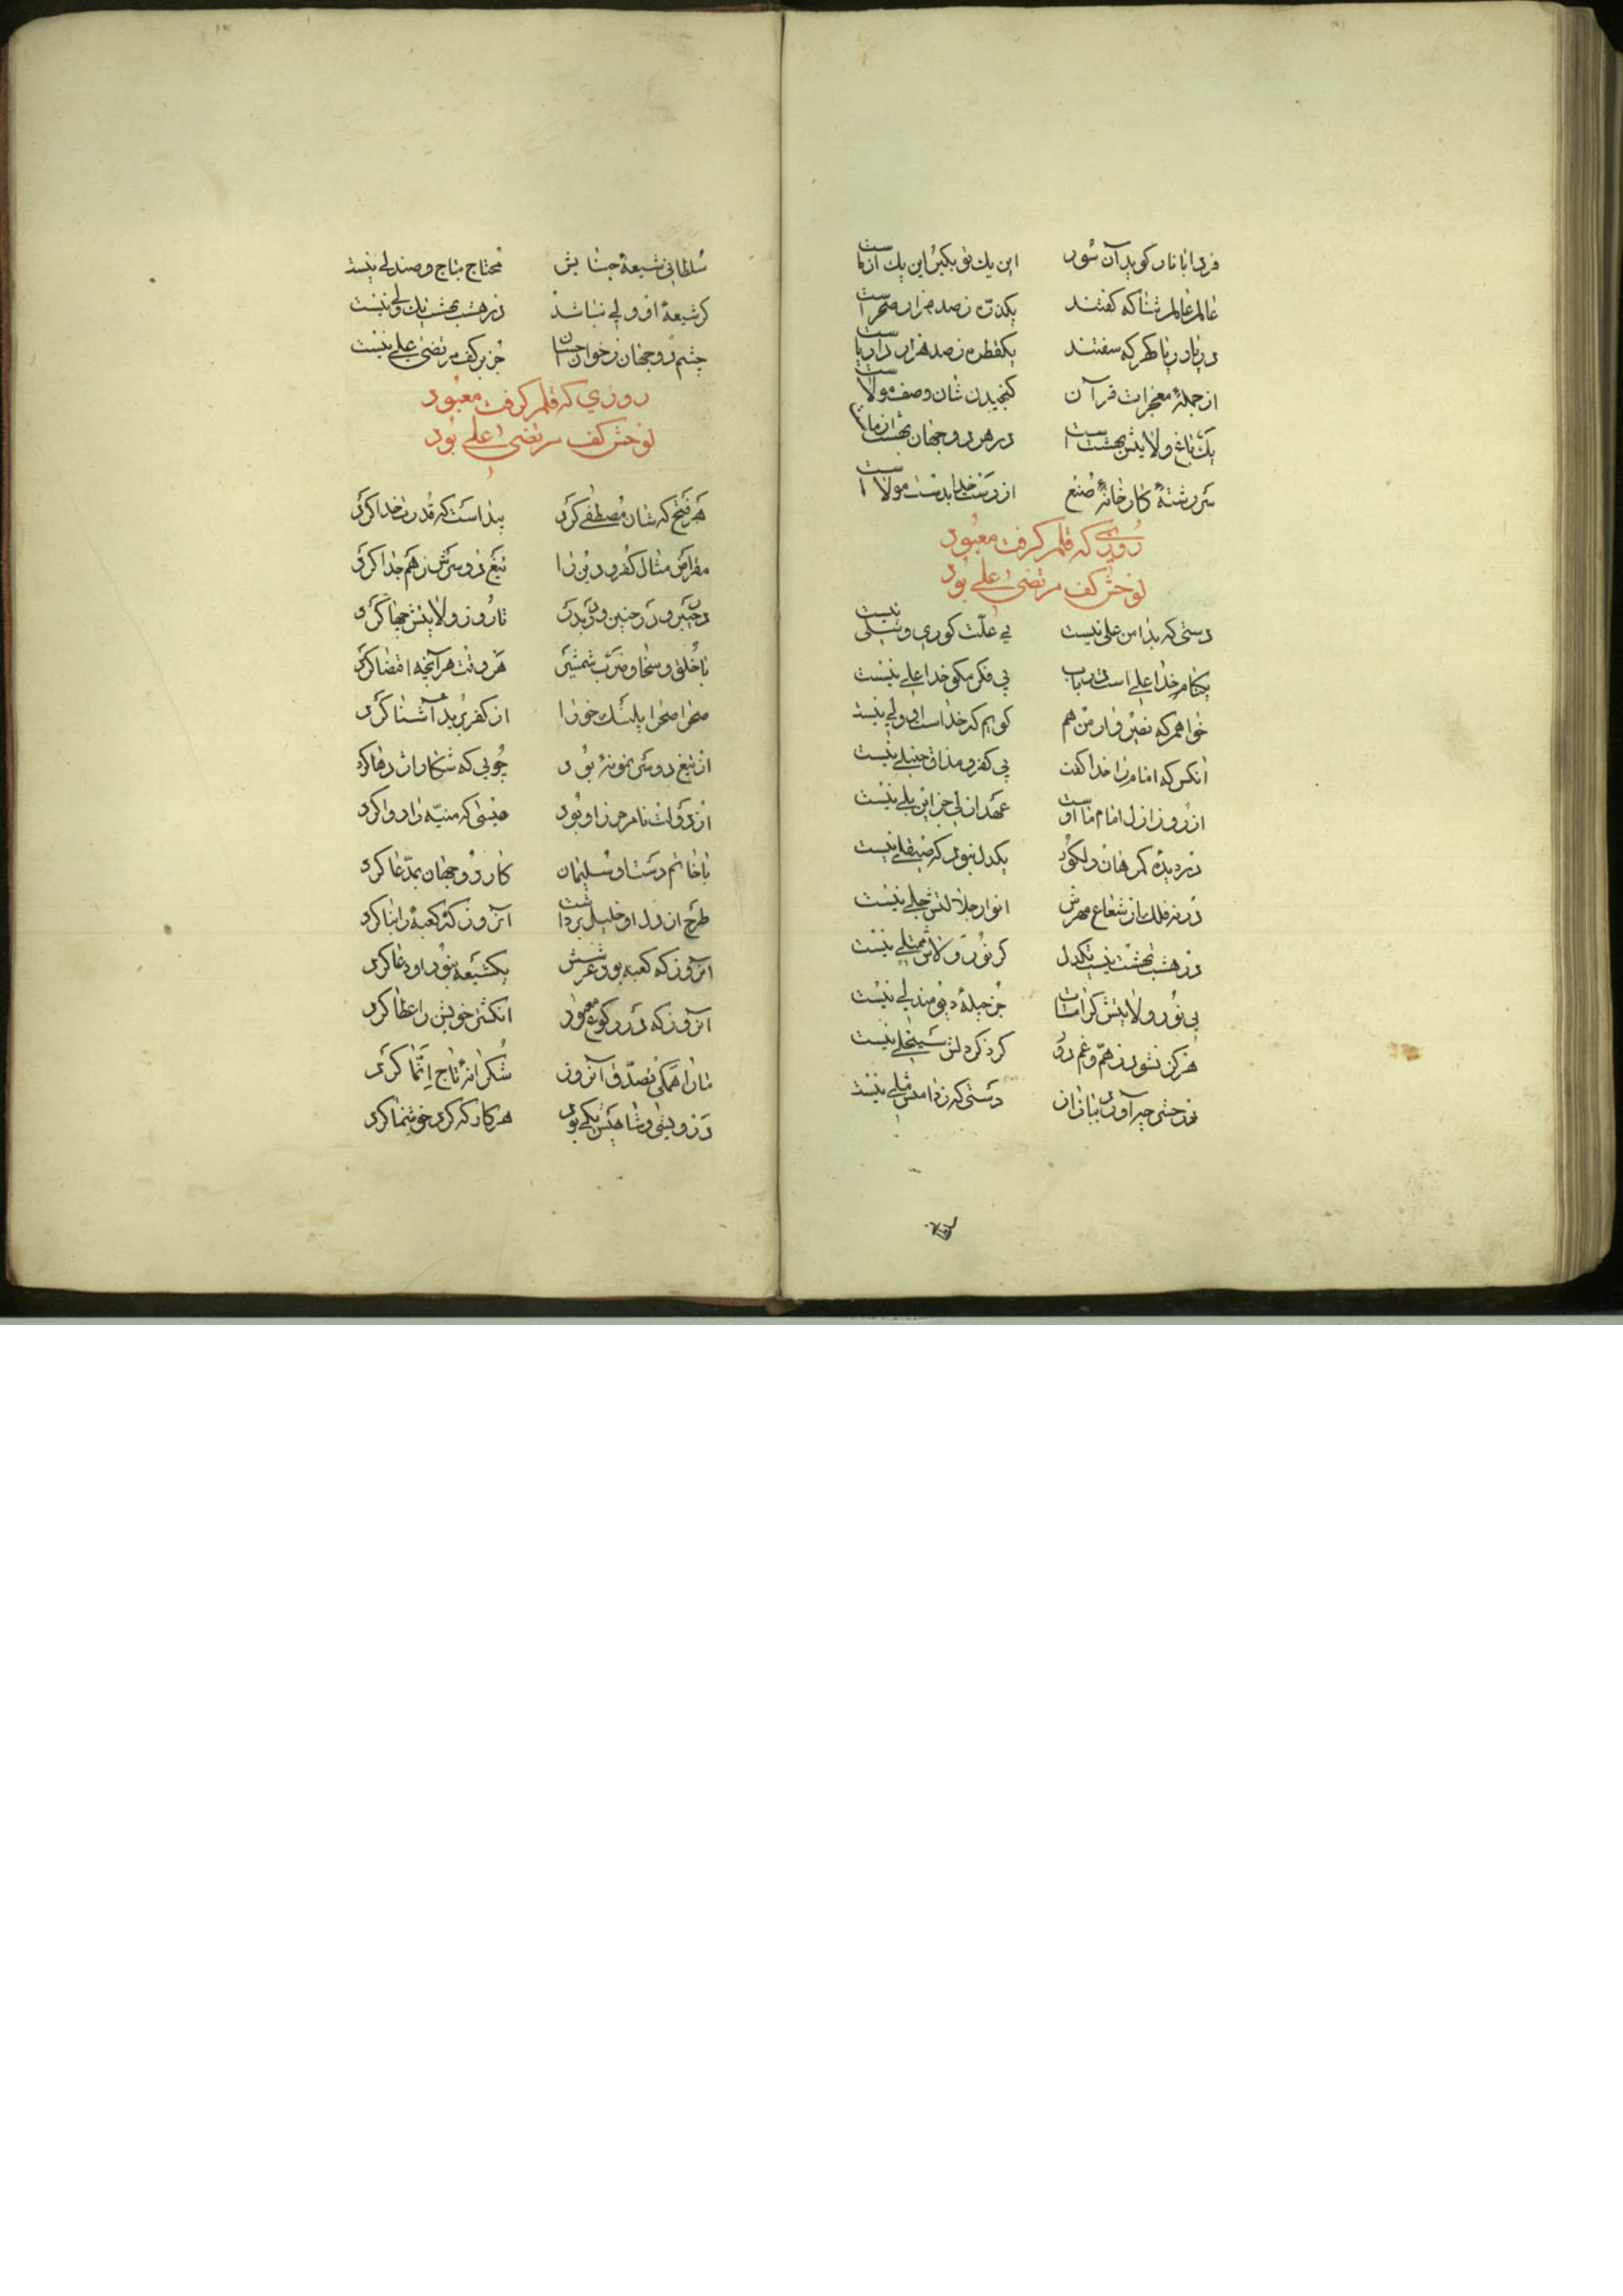 فردا با نار کوید آن سُود این یك تو بکیر این یك از ماست
عالم عالم ثنا که کفتند یکذرّه ز صد هزار صحراست
دریا دریا کهر که سفتند یکقطره ز صد هزار دریاست
از جملهٔ معجزات قرآن کنجیدن شان وصف مولاست
یك باغ ولایتش بهشت است در هر دو جهان بهشت از ماست
سر رشتهٔ کارخانهٔ صُنع از دست خدا بدست مولاست
روزی که قلم کرفت معبُود
لوحش کف مرتضی علی بود
دستی که بدامن علی نیست بی علّت کوری و شلی نیست
خدا علی است بی فکر مکو خدا علی نیست
خواهم که من هم کویم که خداست ولی نیست
آنکس که امام را خدا کفت بی کفر و مذاق حنبلی نیست
از روز ازل امام ما اوست عهد ازلی جز این بلی نیست
یکدل نبود که صیقلی نیست
در نه فلك از شعاع مهرش انوار جلالتش جلی نیست
در هشت بهشت نیست یکدل کز نور ولاش ممتلی نیست
بی نُور ولایتش کرامات جز حیلهٔ دیو مندلی نیست
هرکز نشود ز همّ و غم دُور کرد دلش منجلی نیست
دستی که ز دامنش نیست
سُلطانی شیعهٔ جنابش محتاج بتاج و صندلی نیست
کر شیعهٔ او ولی نباشد در هشت بهشت یك ولی نیست
چشم دو جهان ز خوان احسان جُز بر کف مرتضی علی نیست
روزی که قلم کرفت معبُود
لوحش کف مرتضی علی بُود
هر فتح که شان مُصطفی کرد پیداست که قدرت خدا کرد
مقراض مثال کفر و دین را تیغ دو سرش ز هم جدا کرد
در خیبر و در حنین و در بدر تا روز ولایتش کرد
با خُلق و سخا و ضرب شمشیر هر وقت هر آنچه اقتضا کرد
صحرا صحرا پلنك خو را از کفر برید آشنا کرد
از تیغ دو سر نمونهٔ بُود چُوبی که شکار اژدها کرد
از دولت نام مرز او بُود عیسی که را دوا کرد
با خاتم دست او سُلیمان کار دو جهان بمدّعا کرد
طرح از دل او خلیل برداشت آنروز که کعبه را بنا کرد
آنروز که کعبه بود عرشش یکشیعه بنُور او دعا کرد
آنروز که در رکوع معبُود انکشتر خویش را عطا کرد
ما را همکی تصدّق آنروز شُکرانهٔ تاج إنّما کرد
درویشی و شاهیش یکی بود هر کار که کرد خوشنما کرد